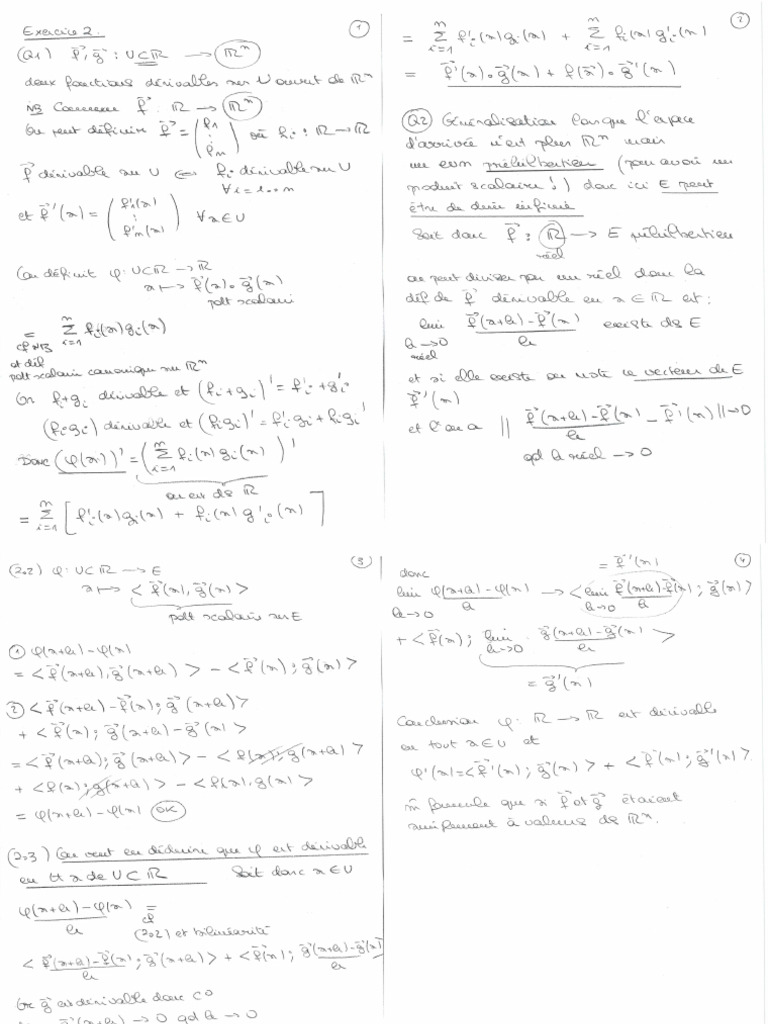 Exercice 2. ①
(Q1) f⃗, g⃗ : U⊂ℝ → ℝⁿ
deux fonctions dérivables sur U ouvert de ℝⁿ
NB Comme f⃗ : ℝ → ℝⁿ
On peut définir f⃗ = (f₁ ⋮ fₙ) où fᵢ : ℝ → ℝ
f⃗ dérivable sur U ⇔ fᵢ dérivable sur U
∀i=1...n
et f⃗'(x) = (f'₁(x) ⋮ f'ₙ(x)) ∀x∈U
On définit φ: U⊂ℝ → ℝ
x ↦ f⃗(x)∘g⃗(x)
pdt scalaire
= Σᵢ₌₁ⁿ fᵢ(x)gᵢ(x)
cf NB
et déf
pdt scalaire canonique sur ℝⁿ
Or fᵢ+gᵢ dérivable et (fᵢ+gᵢ)' = f'ᵢ+g'ᵢ
(fᵢgᵢ) dérivable et (fᵢgᵢ)' = f'ᵢgᵢ + fᵢgᵢ'
Donc (φ(x))' = (Σᵢ₌₁ⁿ fᵢ(x)gᵢ(x))'
on est ds ℝ
= Σᵢ₌₁ⁿ [f'ᵢ(x)gᵢ(x) + fᵢ(x)g'ᵢ(x)]
②
= Σᵢ₌₁ⁿ f'ᵢ(x)gᵢ(x) + Σᵢ₌₁ⁿ fᵢ(x)g'ᵢ(x)
= f⃗'(x)∘g⃗(x) + f(x⃗)∘g⃗'(x)
Q2 Généralisation lorsque l'espace
d'arrivée n'est plus ℝⁿ mais
un evn préhilbertien (pour avoir un
produit scalaire !) donc ici E peut
être de dim infinie
Soit donc f⃗ : ℝ → E préhilbertien
réel
on peut diviser par un réel donc la
déf de f⃗ dérivable en x∈ℝ est :
lim (f⃗(x+h) - f⃗(x))/h existe ds E
h→0
réel
et si elle existe on note le vecteur de E
f⃗'(x)
et l'on a || (f⃗(x+h) - f⃗(x))/h - f⃗'(x) || → 0
qd h réel → 0
③
(2.2) φ: U⊂ℝ → E
x ↦ < f⃗(x), g⃗(x) >
pdt scalaire sur E
① φ(x+h) - φ(x)
= < f⃗(x+h), g⃗(x+h) > - < f⃗(x) ; g⃗(x) >
② < f⃗(x+h) - f⃗(x) ; g⃗(x+h) >
+ < f⃗(x) ; g⃗(x+h) - g⃗(x) >
= < f⃗(x+h) ; g⃗(x+h) > - < f(x) ; g(x+h) >
+ < f(x) ; g(x+h) > - < f(x), g(x) >
= φ(x+h) - φ(x) OK
(2.3) On veut en déduire que φ est dérivable
en tt x de U⊂ℝ Soit donc x∈U
(φ(x+h) - φ(x))/h =
cf
(2.2) et bilinéarité
< (f⃗(x+h) - f⃗(x))/h ; g⃗(x+h) > + < f⃗(x) ; (g⃗(x+h) - g⃗(x))/h
Or g⃗ est dérivable donc C⁰
g⃗(x+h) → 0 qd h → 0
④
= f⃗'(x)
donc
lim (φ(x+h) - φ(x))/h → < lim (f⃗(x+h) - f⃗(x))/h ; g⃗(x) >
h→0 h→0
+ < f⃗(x) ; lim (g⃗(x+h) - g⃗(x))/h >
h→0
= g⃗'(x)
Conclusion φ: ℝ → ℝ est dérivable
en tout x∈U et
φ'(x) = < f⃗'(x) ; g⃗(x) > + < f⃗(x) ; g⃗'(x) >
m̂ formule que si f⃗ et g⃗ étaient
simplement à valeurs ds ℝⁿ.